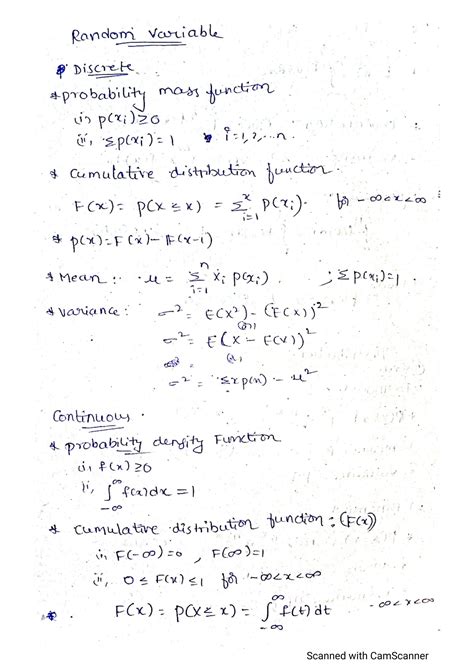 Random Variable
Discrete
* probability mass function
(i) p(xi) ≥ 0
(ii) Σp(xi) = 1  i = 1, 2, ... n.
* Cumulative distribution function.
F(x) = P(X ≤ x) = Σ_{i=1}^{x} P(xi). for -∞ < x < ∞
* p(x) = F(x) - F(x-1)
* Mean : μ = Σ_{i=1}^{n} xi p(xi) ; Σp(xi) = 1
* Variance : σ² = E(X²) - (E(X))²
(or)
σ² = E(X - E(X))²
σ² = Σxp(x) - μ²
Continuous.
* probability density Function
(i) f(x) ≥ 0
(ii) ∫_{-∞}^{∞} f(x)dx = 1
* Cumulative distribution function : (F(x))
(i) F(-∞) = 0, F(∞) = 1
(ii) 0 ≤ F(x) ≤ 1 for -∞ < x < ∞
F(x) = P(X ≤ x) = ∫_{-∞}^{∞} f(t) dt  -∞ < x < ∞
Scanned with CamScanner